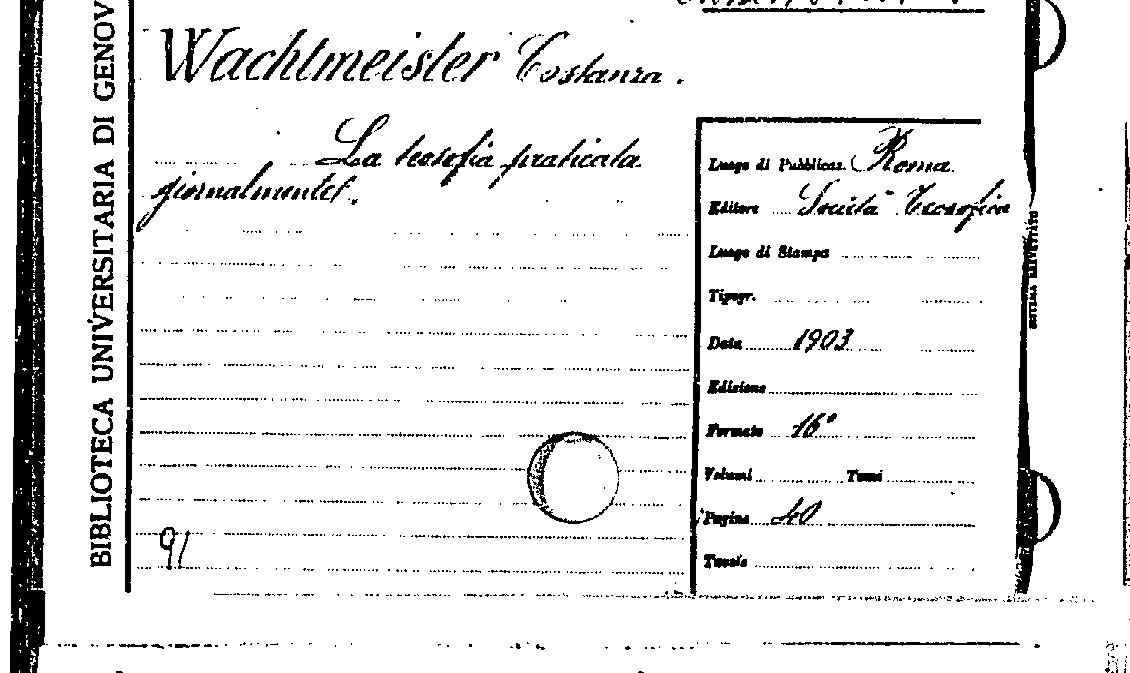 BIBLIOTECA UNIVERSITARIA DI GENOV
Wachtmeister Costanza.
La teosofia praticata
giornalmente.
Luogo di Pubblicaz. Roma
Editore Società Teosofica
Luogo di Stampa
Tipogr.
Data 1903
Edizione
Formato 16°
Volumi Tomi
Pagine 40
Tavole
91